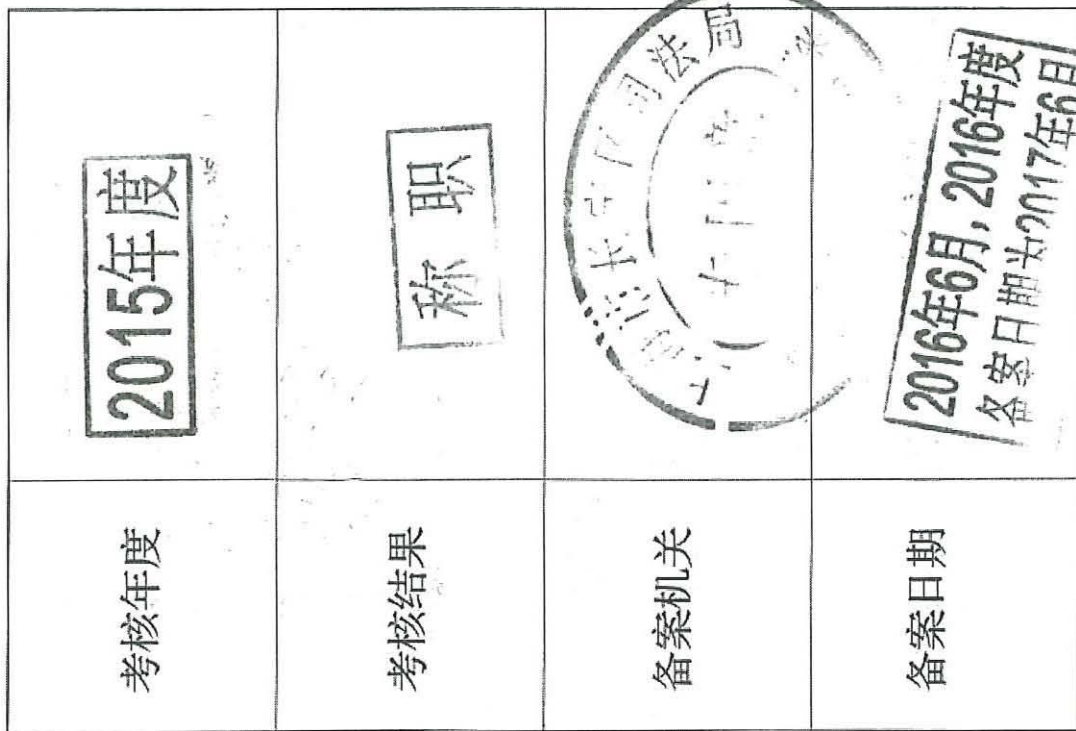 考核年度
2015年度
考核结果
称职
备案机关
上海市长宁区司法局
备案日期
2016年6月，2016年度
备案日期为2017年6月